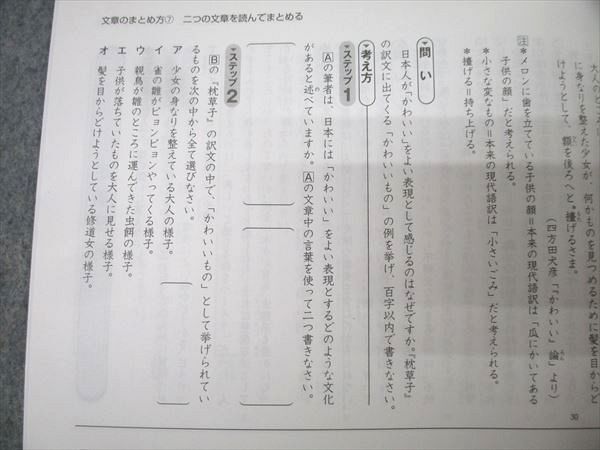 に身なりを整えた少女が、何かものを見つめるために髪を目からど
けようとして、額を後ろへと＊擡げるさま。
（四方田犬彦「「かわいい」論」より）
注＊メロンに歯を立てている子供の顔＝本来の現代語訳は「瓜にかいてある
子供の顔」だと考えられる。
＊小さな変なもの＝本来の現代語訳は「小さいごみ」だと考えられる。
＊擡げる＝持ち上げる。
問い
日本人が「かわいい」をよい表現として感じるのはなぜですか。『枕草子』
の訳文に出てくる「かわいいもの」の例を挙げ、百字以内で書きなさい。
考え方
ステップ1
Aの筆者は、日本には「かわいい」をよい表現とするどのような文化
があると述べていますか。Aの文章中の言葉を使って二つ書きなさい。
ステップ2
Bの『枕草子』の訳文の中で、「かわいいもの」として挙げられてい
るものを次の中から全て選びなさい。
ア　少女の身なりを整えている大人の様子。
イ　雀の雛がピョンピョンやってくる様子。
ウ　親鳥が雛のところに運んできた虫餌の様子。
エ　子供が落ちていたものを大人に見せる様子。
オ　髪を目からどけようとしている修道女の様子。
文章のまとめ方⑦　二つの文章を読んでまとめる
30